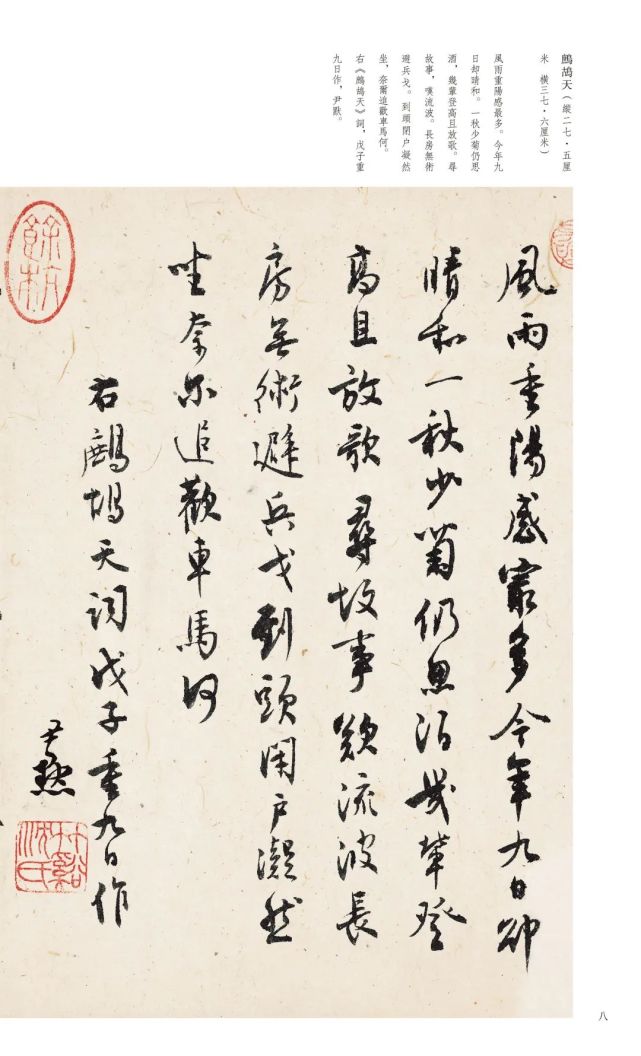 鷓鴣天（縱二七·五厘
米　橫三七·六厘米）
風雨重陽感最多。今年九
日却晴和。一秋少菊仍思
酒，幾輩登高且放歌。尋
故事，嘆流波。長房無術
避兵戈。到頭閉户凝然
坐，奈爾追歡車馬何。
右《鷓鴣天》詞，戊子重
九日作，尹默。
風雨重陽感最多今年九日却
晴和一秋少菊仍思酒幾輩登
高且放歌尋故事歎流波長
房無術避兵戈到頭閉戶凝然
坐奈爾追歡車馬何
右鷓鴣天詞戊子重九日作
尹默
竹谿沈氏
餘杭
八